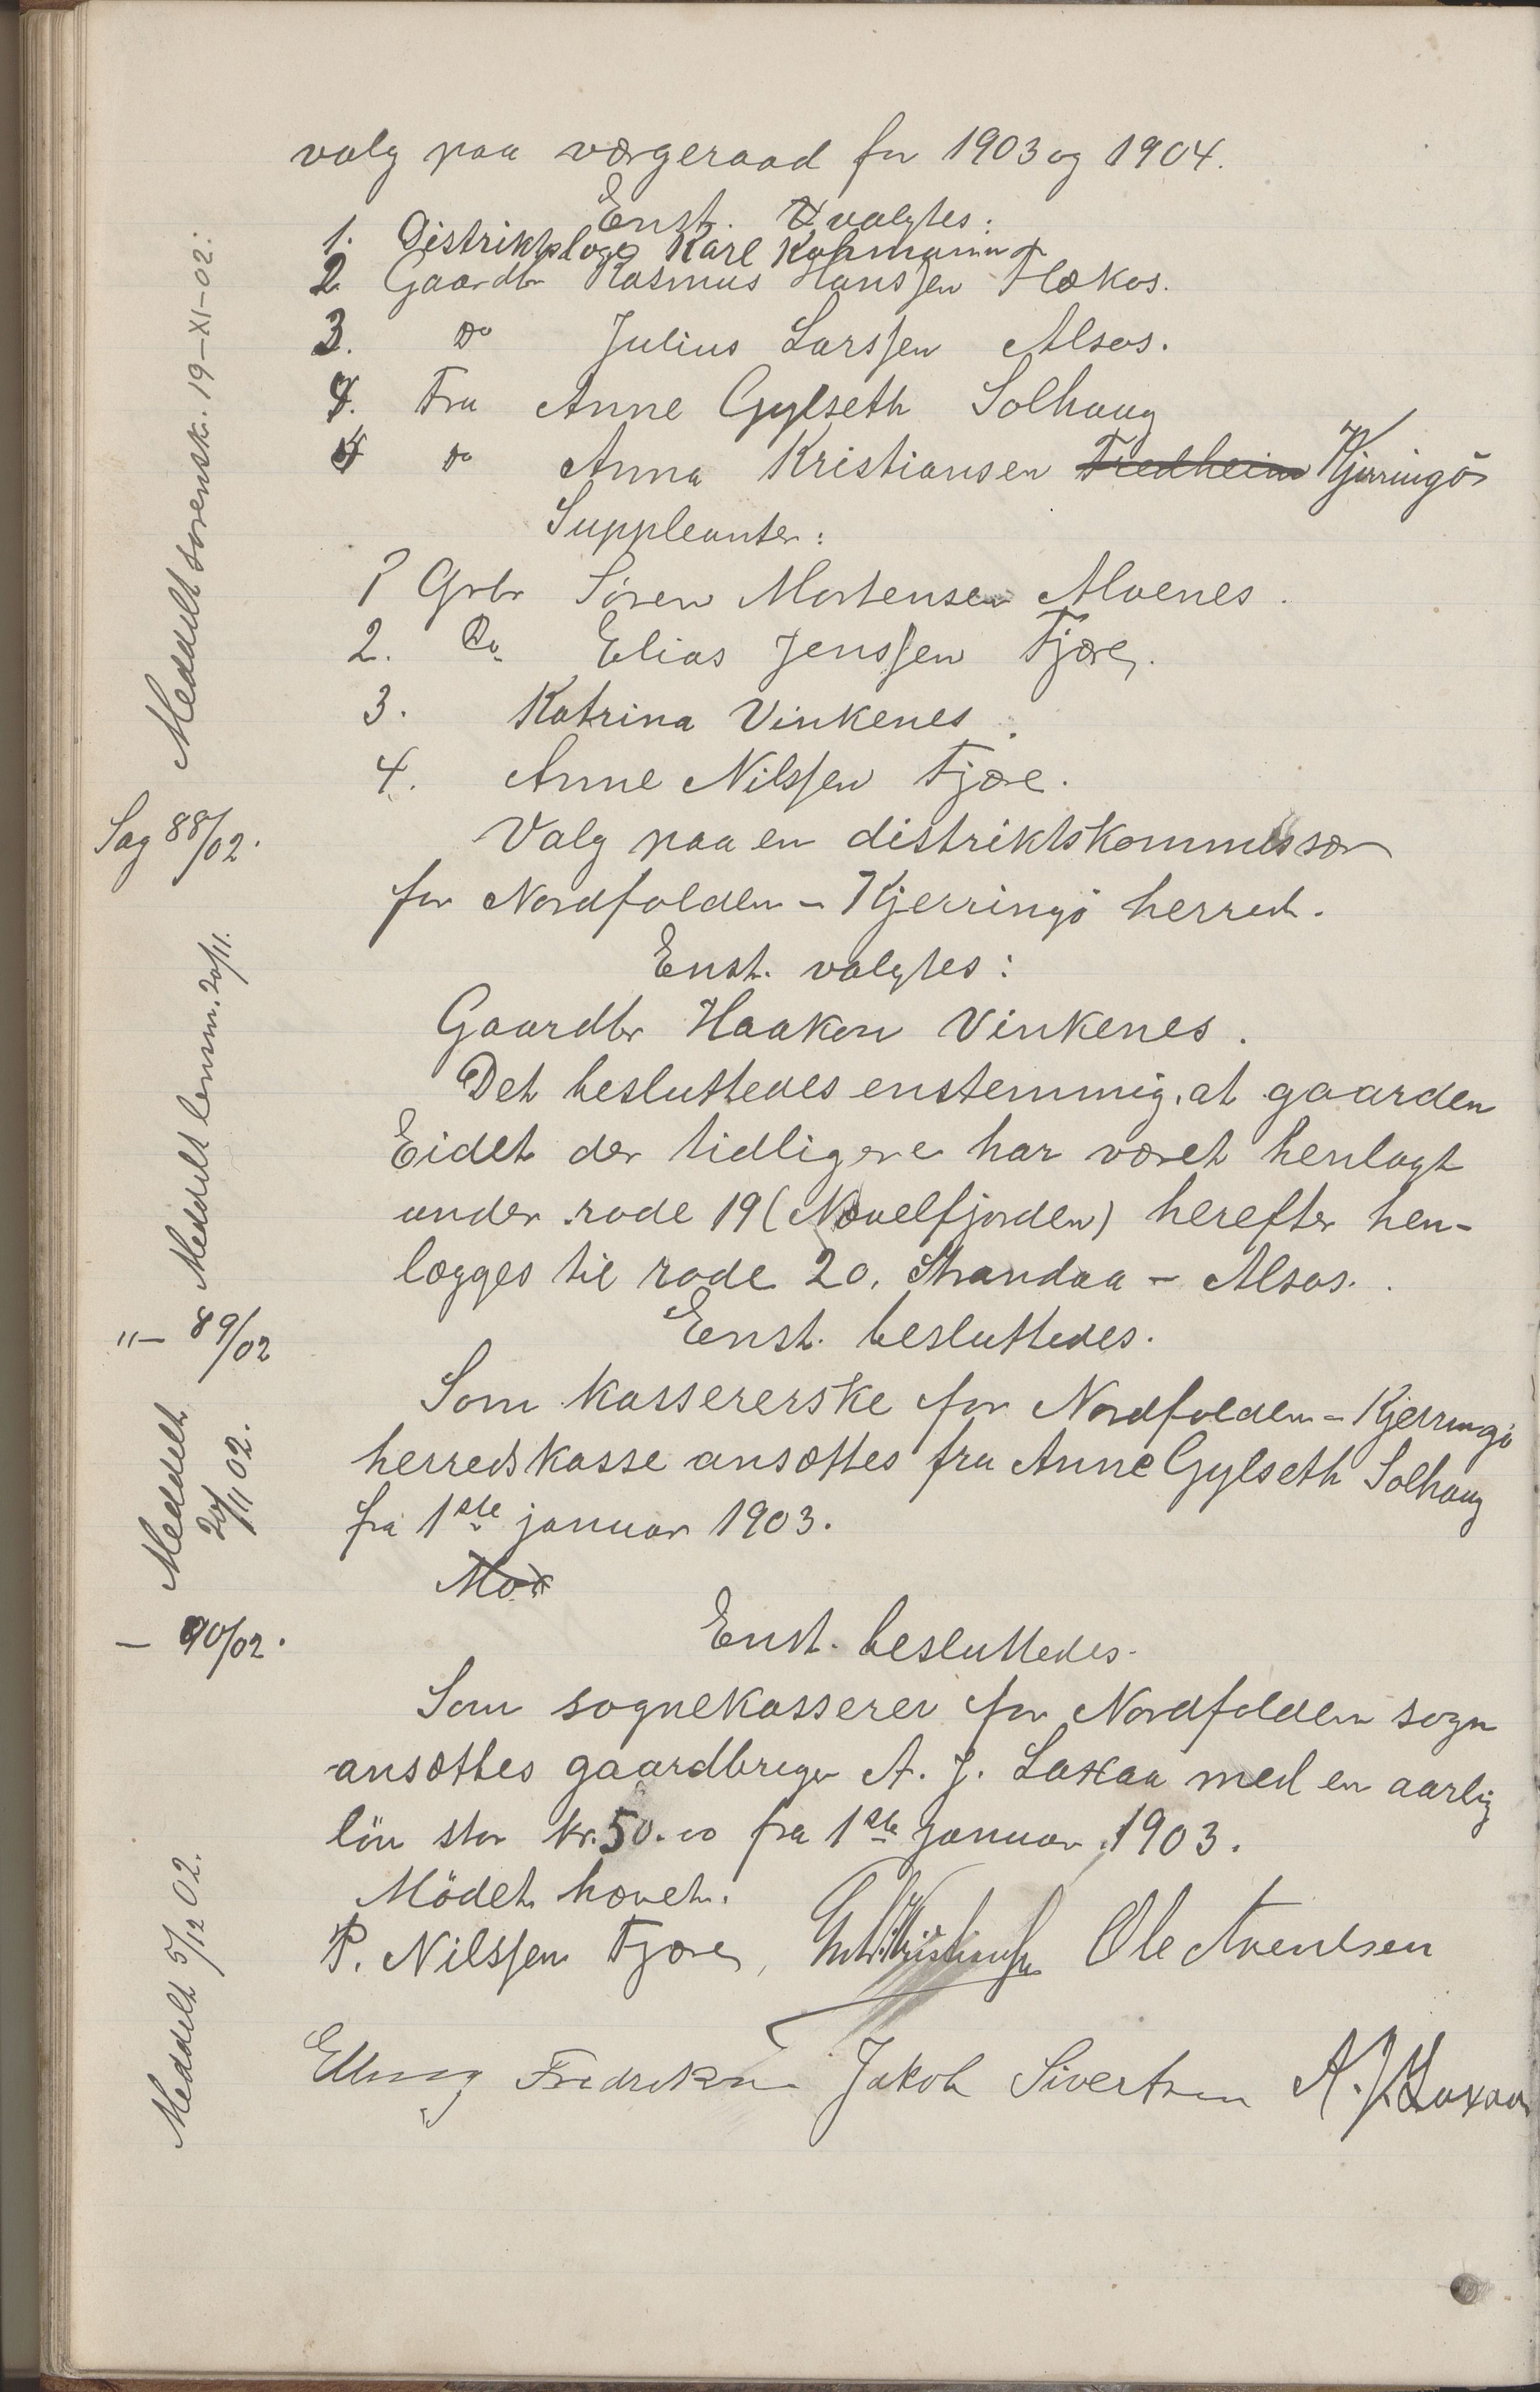 valg paa værgeraad for 1903 og 1904.
Enst. valgtes:
1. Distriktslæge Karl Kahrmann
2 Gaardbr Rasmus Hanssen Flækøs.
3. Do Julius Larssen Alsos.
4. Fru Anne Gylseth Solhaug
5 Do Anna Kristiansen Fredheim Kjerringö
Suppleanter:
1 Grbr Sören Mortensen Alvenes.
2. Do Elias Jenssen Fjære.
3. Katrina Vinkenes.
4. Anne Nilssen Fjære.
Meddelt sorensk. 19-XI-02.
Sag 88/02.
Valg paa en distriktskommissær
for Nordfolden - Kjerringö herred.
Enst. valgtes:
Gaardbr Haakon Vinkenes.
Det besluttedes enstemmig, at gaarden
Eidet der tidligere har været henlagt
under rode 19 (Nævelfjorden) herefter hen-
lægges til rode 20. Strandaa - Alsos.
Meddelt lensm. 20/11.
"- 89/02
Enst. besluttedes.
Som kassererske for Nordfolden - Kjerringö
herredskasse ansættes fru Anne Gylseth Solhaug
fra 1ste januar 1903.
Mø
Meddelt
20/11 02.
- 90/02.
Enst. besluttedes.
Som sognekasserer for Nordfolden sogn
ansættes gaardbruger A. J. Laxaa med en aarlig
lön stor kr. 50.00 fra 1ste januar 1903.
Mödet hævet.
Meddelt 5/12 02.
P. Nilssen Fjære, Kristiansen Ole Arentsen
Elling Fredriksen Jakob Sivertsen A. J. Laxaa